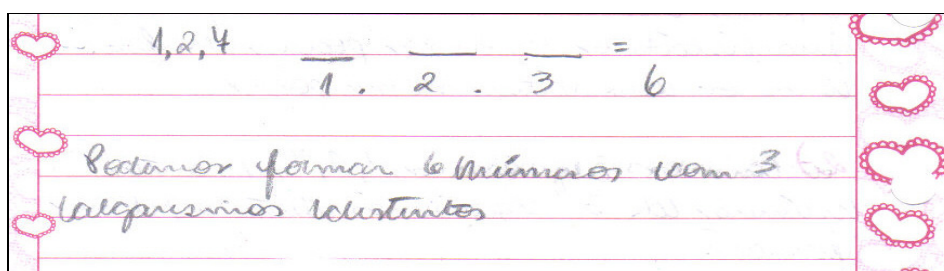 1,2,4 __ __ __ =
1 . 2 . 3 6
Podemos formar 6 números com 3
algarismos distintos